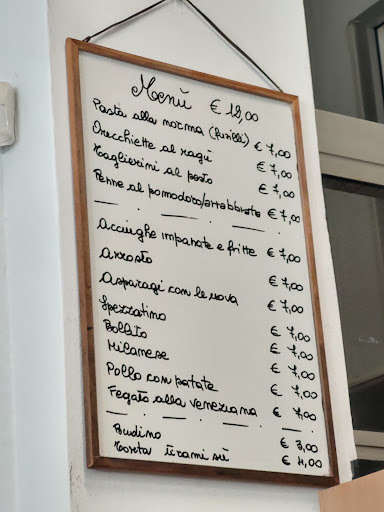 Menù € 12,00
Pasta alla norma (fusilli) € 7,00
Orecchiette al ragù € 7,00
Taglierini al pesto € 7,00
Penne al pomodoro/arrabbiata € 7,00
Acciughe impanate e fritte € 7,00
Arrosto € 7,00
Asparagi con le uova € 7,00
Spezzatino € 7,00
Bollito € 7,00
Milanese € 7,00
Pollo con patate € 7,00
Fegato alla veneziana € 7,00
Budino € 3,00
Torta tirami sù € 4,00